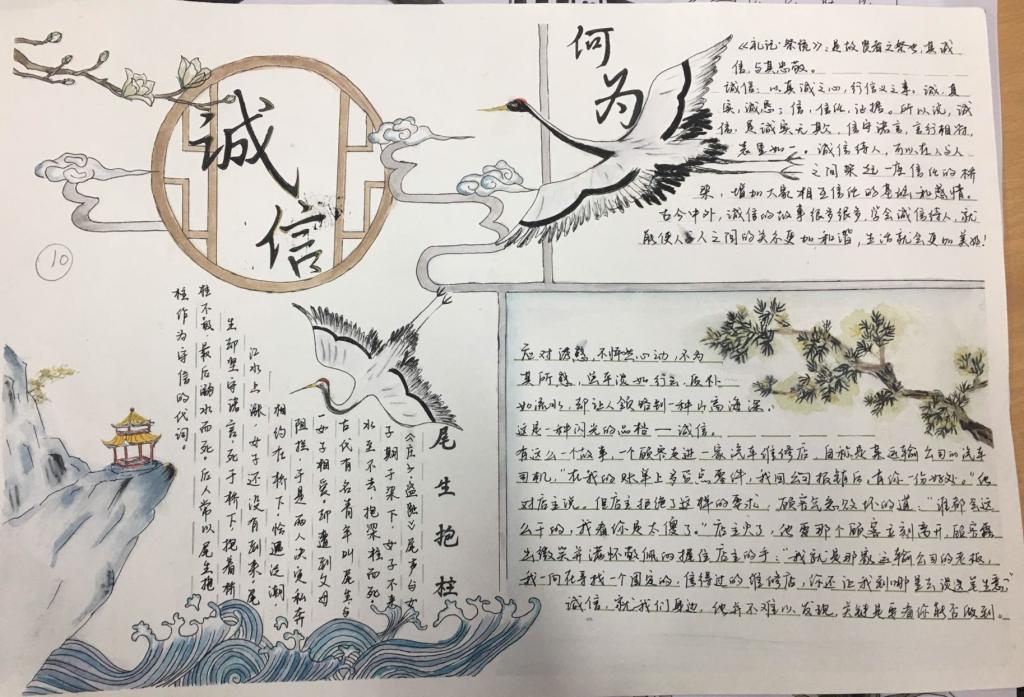 诚信
何为
《礼记·祭统》：是故贤者之祭也，其诚
信，与其忠敬。
诚信：以真诚之心，行信义之事。诚，真
实，诚恳；信，信任，证据。所以说，诚
信，是诚实无欺，信守诺言，言行相符，
表里如一。诚信待人，可以在人与人
之间架起一座信任的桥
梁，增加大家相互信任的基础和感情。
古今中外，诚信的故事很多很多，学会诚信待人，就
能使人与人之间的关系更加和谐，生活就会更加美好！
10
尾生抱柱
《庄子·盗跖》尾声白女
子期于梁下，女子不来
水至不去抱梁柱而死
古代有名青年叫尾生与
一女子相爱却遭到父母
阻挠，于是两人决定私奔
相约在桥下，恰遇涨潮，
江水上涨，女子还没有到来，尾
生却坚守诺言死于桥下，抱着桥
柱不放，最后溺水而死，后人常以尾生抱
柱作为守信的代词。
应对诱惑，不怦然心动，不为
其所惑，虽平淡如行云，质朴
如流水，却让人领略到一种山高海深。
这是一种闪光的品格——诚信。
有这么一个故事，一个顾客走进一家汽车维修店，自称是某运输公司的汽车
司机，“在我的账单上多写点零件，我回公司报销后，有你一份好处。”他
对店主说。但店主拒绝了这样的要求，顾客气急败坏的道：“谁都会这
么干的，我看你是太傻了。”店主火了，他要那个顾客立刻离开，顾客露
出微笑并满怀敬佩的握住店主的手：“我就是那家运输公司的老板，
我一向在寻找一个固定的、信得过的维修店，你还让我到哪里去谈这笔生意？”
诚信，就我们身边，他并不难以发现，关键是要看你能否做到。